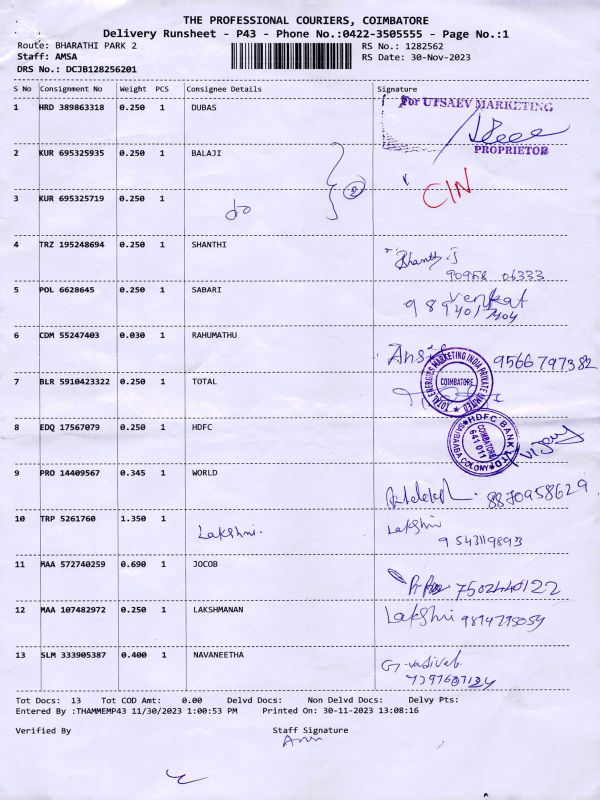 THE PROFESSIONAL COURIERS, COIMBATORE
Delivery Runsheet - P43 - Phone No.:0422-3505555 - Page No.:1
Route: BHARATHI PARK 2 RS No.: 1282562
Staff: AMSA RS Date: 30-Nov-2023
DRS No.: DCJB128256201
S No Consignment No Weight PCS Consignee Details Signature
1 HRD 389863318 0.250 1 DUBAS For UTSAEV MARKETING
PROPRIETOR
2 KUR 695325935 0.250 1 BALAJI
2 CIN
3 KUR 695325719 0.250 1 do
4 TRZ 195248694 0.250 1 SHANTHI Shanthi.S
90958 06333
5 POL 6628645 0.250 1 SABARI Venkat
6 CDM 55247403 0.030 1 RAHUMATHU 9566797382
7 BLR 5910423322 0.250 1 TOTAL TOTAL ENERGIES MARKETING INDIA PRIVATE LIMITED COIMBATORE
8 EDQ 17567079 0.250 1 HDFC HDFC BANK LTD COIMBATORE 641 011 SAIBAABA COLONY Vijay
9 PRO 14409567 0.345 1 WORLD 8870958629
10 TRP 5261760 1.350 1 Lakshmi. Lakshmi
9543119893
11 MAA 572740259 0.690 1 JOCOB 7502440122
12 MAA 107482972 0.250 1 LAKSHMANAN Lakshmi
13 SLM 333905387 0.400 1 NAVANEETHA G. vadivel
Tot Docs: 13 Tot COD Amt: 0.00 Delvd Docs: Non Delvd Docs: Delvy Pts:
Entered By :THAMMEMP43 11/30/2023 1:00:53 PM Printed On: 30-11-2023 13:08:16
Verified By Staff Signature